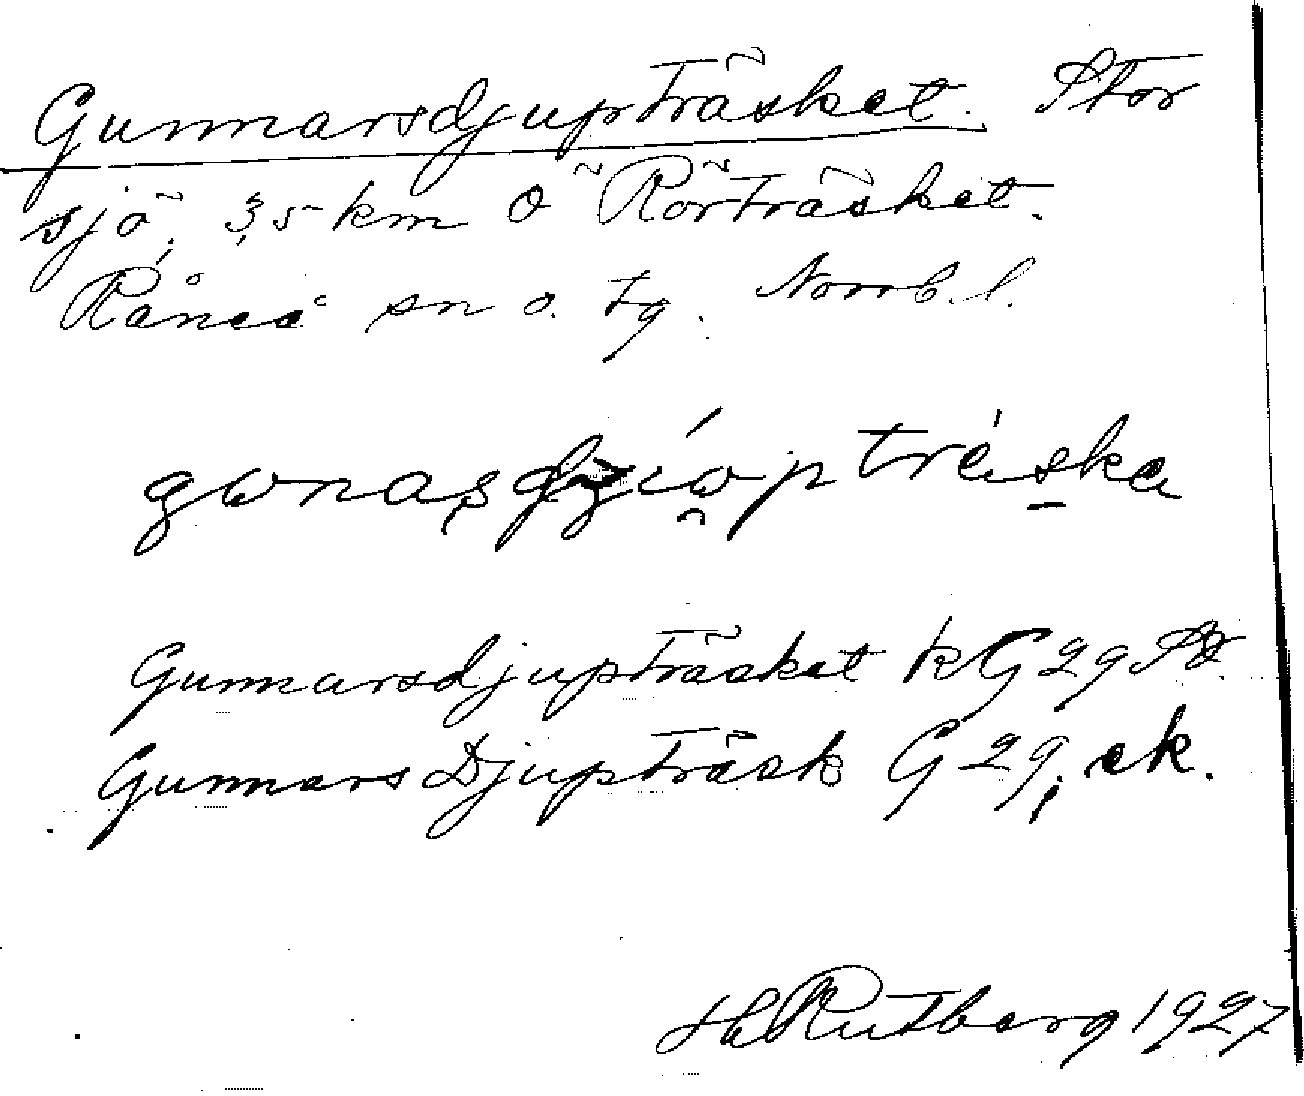 Gunnarsdjupträsket. Stor
sjö, 3,5 km Ö Rörträsket.
Råneå sn o. tg. Norrb. l.
Gunnarsdjupträsket kG29
Gunnars Djupträsk G29; ek.
H Rutberg 1927